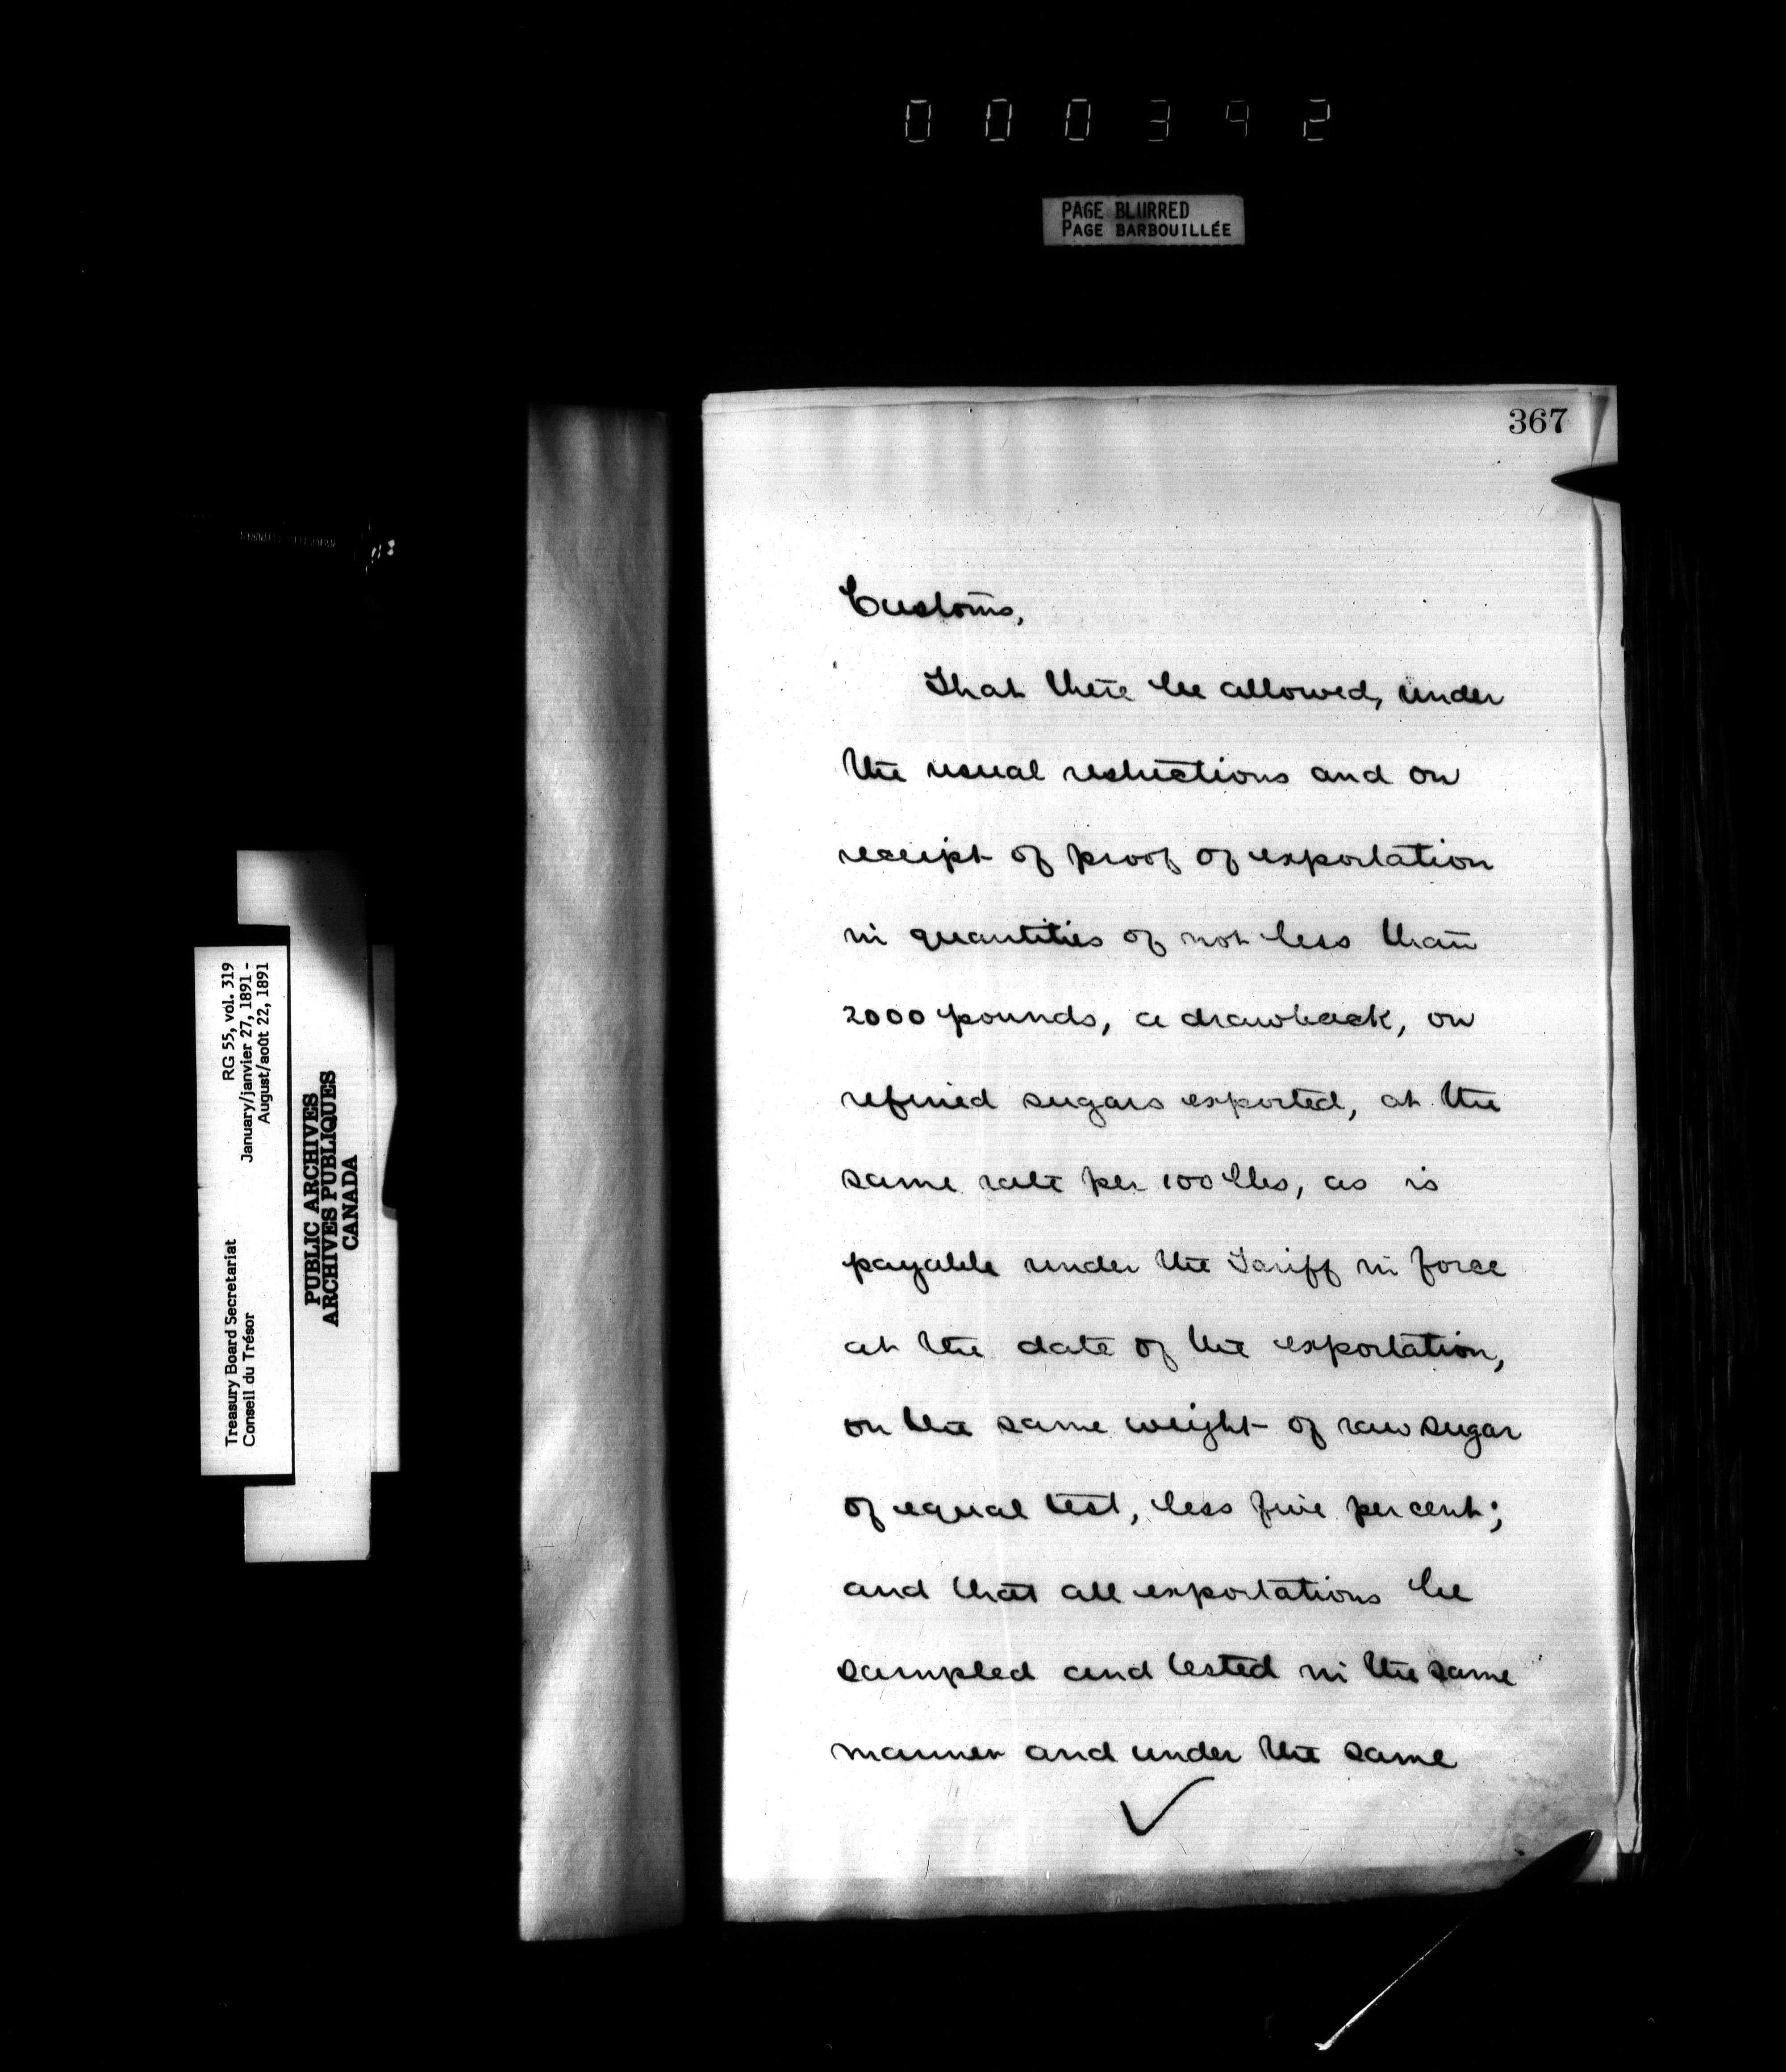 000392
PAGE BLURRED
PAGE BARBOUILLÉE
367
Customs,
That there be allowed, under
the usual restrictions and on
receipt of proof of exportation
in quantities of not less than
2000 pounds, a drawback, on
refined sugars exported, at the
same rate per 100 lbs, as is
payable under the Tariff in force
at the date of the exportation,
on the same weight of raw sugar
of equal test, less five per cent;
and that all exportations be
sampled and tested in the same
manner and under the same
Treasury Board Secretariat RG 55, vol. 319
Conseil du Trésor January/janvier 27, 1891 -
August/août 22, 1891
PUBLIC ARCHIVES
ARCHIVES PUBLIQUES
CANADA